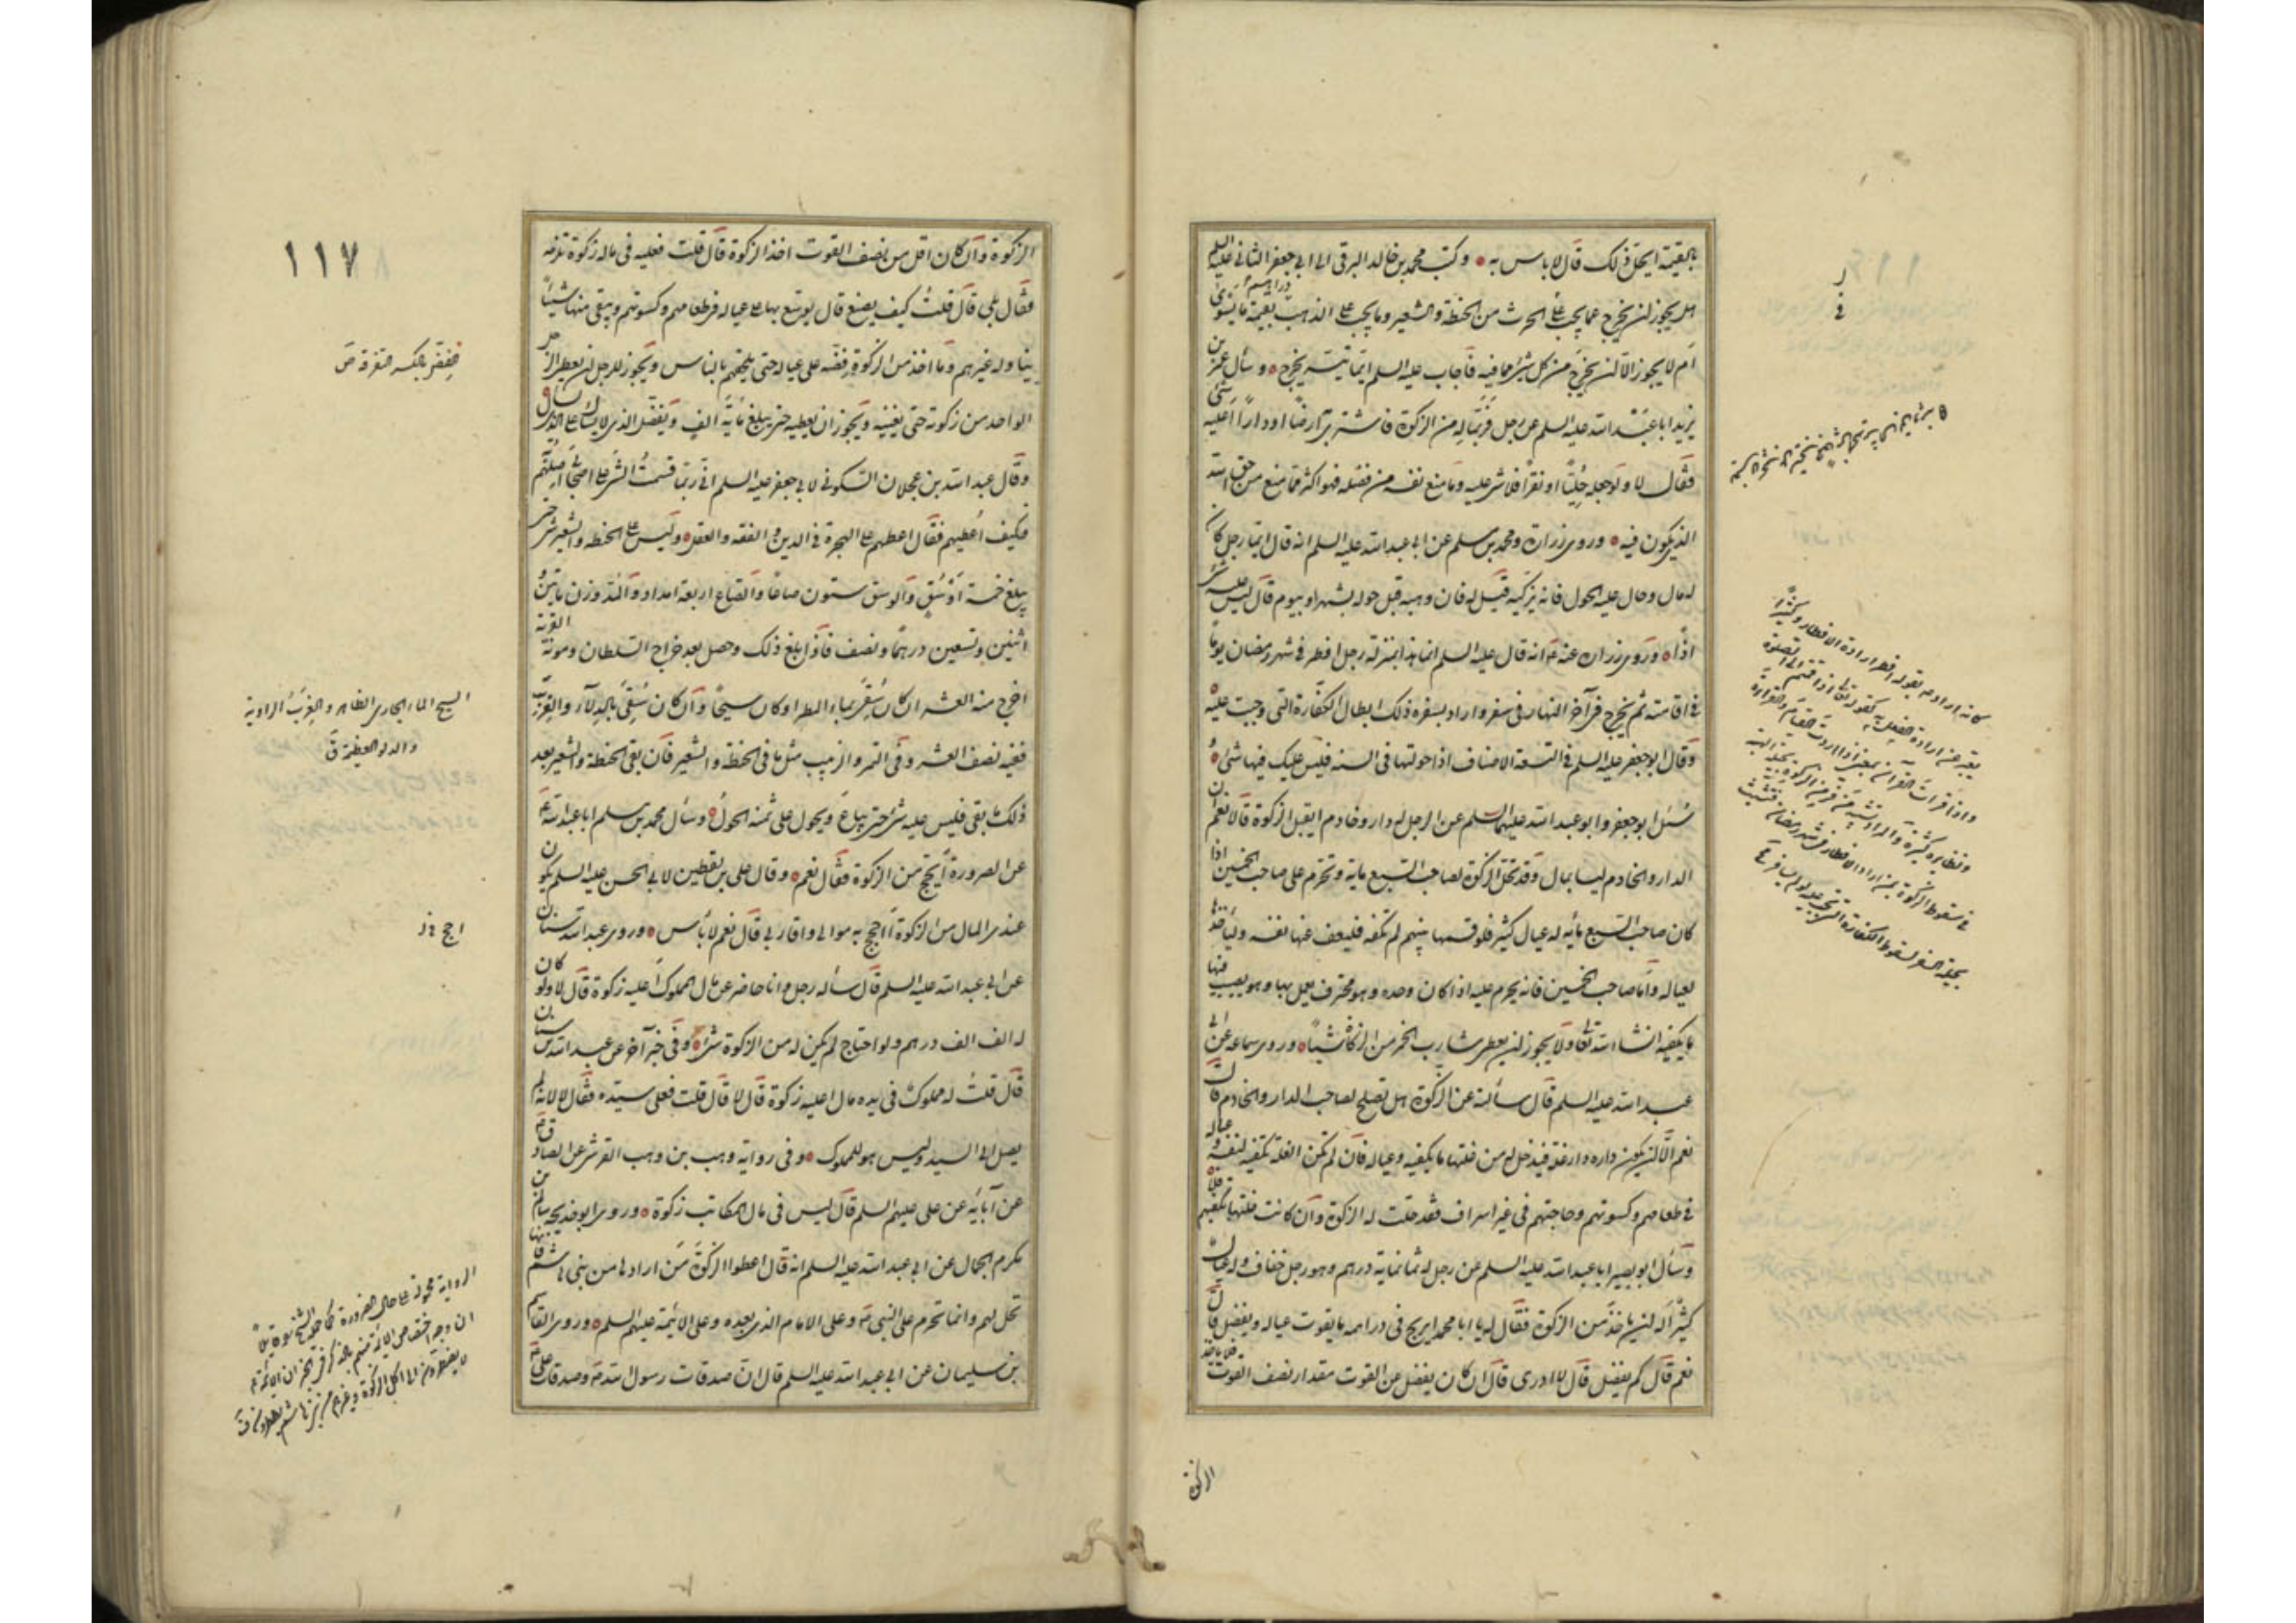 بالقيمة ايحل ذلك قال لا باس به وكتب محمد بن خالد البرقي الى ابي جعفر الثاني عليه السلم
هل يجوز لن يخرج عما يجب على الحرث من الحنطة والشعير وما يجب على الذهب دراهم بقيمة ما يسوى
ام لا يجوز الا لن يخرج من كل شئ ما فيه فاجاب عليه السلم ايما تيسر يخرج وسال عمر بن
يزيد ابا عبد الله عليه السلم عن رجل فر بماله من الزكوة فاشترى به ارضا او دارا اعليه شئ
فقال لا ولو جعله حليا او نقرا فلا شئ عليه وما منع نفسه من فضله فهو اكثر مما منع من حق الله
الذي يكون فيه وروى زرارة ومحمد بن مسلم عن ابي عبد الله عليه السلم انه قال ايما رجل كان
له مال وحال عليه الحول فانه يزكيه قيل له فان وهبه قبل حوله بشهر او بيوم قال ليس عليه شئ
اذا وروى زرارة عنه ع انه قال عليه السلم انما هذا بمنزلة رجل افطر في شهر رمضان يوما
في اقامته ثم يخرج في آخر النهار في سفر واراد بسفره ذلك ابطال الكفارة التي وجبت عليه
وقال ابو جعفر عليه السلم في التسعة الاصناف اذا حولتها في السنه فليس عليك فيها شئ
سئل ابو جعفر وابو عبد الله عليهما السلم عن الرجل له دار وخادم ايقبل الزكوة قالا نعم ان
الدار والخادم ليسا بمال وقد تحل الزكوة لصاحب السبع ماية وتحرم على صاحب الخمسين اذا
كان صاحب السبع مأيه له عيال كثير فلو قسمها بينهم لم تكفه فليعف عنها نفسه وليأخذها
لعياله واما صاحب الخمسين فانه يحرم عليه اذا كان وحده وهو محترف يعمل بها وهو يصيب فيها
ما يكفيه انشاء الله تعالى ولا يجوز لن يعطى شارب الخمر من الزكوة شيئا وروى سماعه عن ابي
عبد الله عليه السلم قال سألته عن الزكوة هل تصلح لصاحب الدار والخادم قال
نعم الا لن يكون داره دار غلة فيدخل له من غلتها ما يكفيه وعياله فان لم تكن الغلة تكفيه لنفسه وعياله
في طعامهم وكسوتهم وحاجتهم في غير اسراف فقد حلت له الزكوة وان كانت غلتها تكفيهم فلا
وسأل ابو بصير ابا عبد الله عليه السلم عن رجل له ثمانماية درهم وهو رجل خفاف وله عيال
كثير اله لن ياخذ من الزكوة فقال له يا ابا محمد ايربح في دراهمه ما يقوت عياله ويفضل قال
نعم قال كم يفضل قال لا ادرى قال ان كان يفضل عن القوت مقدار نصف القوت فلا ياخذ
الزكوة
١١٧
الزكوة وان كان اقل من نصف القوت اخذ الزكوة قال قلت فعليه في ماله زكوة تلزمه
فقال بلى قال قلت كيف يصنع قال يوسع بها على عياله في طعامهم وكسوتهم ويبقى منها شيئا
يناوله غيرهم وما اخذ من الزكوة فضه على عياله حتى يلحقهم بالناس ويجوز للرجل لن يعطى الرجل
الواحد من زكوته حتى يغنيه ويجوز ان يعطيه حتى يبلغ مأية الف ويفضل الذي لا يسال على الذي يسال
وقال عبد الله بن عجلان السكوني لابي جعفر عليه السلم اني ربما قسمت الشئ على اصحابي اصلهم
فكيف اعطيهم فقال اعطهم على الهجرة في الدين والفقه والعقل وليس على الحنطه والشعير شئ حتى
يبلغ خمسة اوسق والوسق ستون صاعا والصاع اربعة امداد والمد وزن مأتين و
اثنين وتسعين درهما ونصف فاذا بلغ ذلك وحصل بعد خراج السلطان ومونة القرية
اخرج منه العشر ان كان سقى بماء المطر او كان سيحا وان كان سقى بالدلاء والغرب
ففيه نصف العشر وفي التمر والزبيب مثل ما في الحنطه والشعير فان بقى الحنطة والشعير بعد
ذلك ما بقى فليس عليه شئ حتى يباع ويحول على ثمنه الحول وسأل محمد بن مسلم ابا عبد الله ع
عن الصرورة أيحج من الزكوة فقال نعم وقال على بن يقطين لابي الحسن عليه السلم يكون
عندى المال من الزكوة أفاحج به موالى واقاربي قال نعم لا بأس وروى عبد الله بن سنان
عن ابي عبد الله عليه السلم قال سأله رجل وانا حاضر عن مال المملوك أعليه زكوة قال لا ولو كان
له الف الف درهم ولو احتاج لم يكن له من الزكوة شئ وفي خبر آخر عن عبد الله بن سنان
قال قلت له مملوك في يده مال اعليه زكوة قال لا قال قلت فعلى سيده فقال لا لانه لم
يصل الى السيد وليس هو للمملوك وفي رواية وهب بن وهب القرشي عن الصادق ع
عن آبائه عن على عليهم السلم قال ليس في مال المكاتب زكوة وروى ابو خديجه سالم بن
مكرم الجمال عن ابي عبد الله عليه السلم انه قال اعطوا الزكوة من ارادها من بني هاشم فانها
تحل لهم وانما تحرم على النبي ص وعلى الامام الذي بعده وعلى الائمة عليهم السلم وروى القاسم
بن سليمان عن ابي عبد الله عليه السلم قال ان صدقات رسول الله ص وصدقات على ع
السيح الماء الجارى الظاهر والغرب الراوية
والدلو العظيمة ق